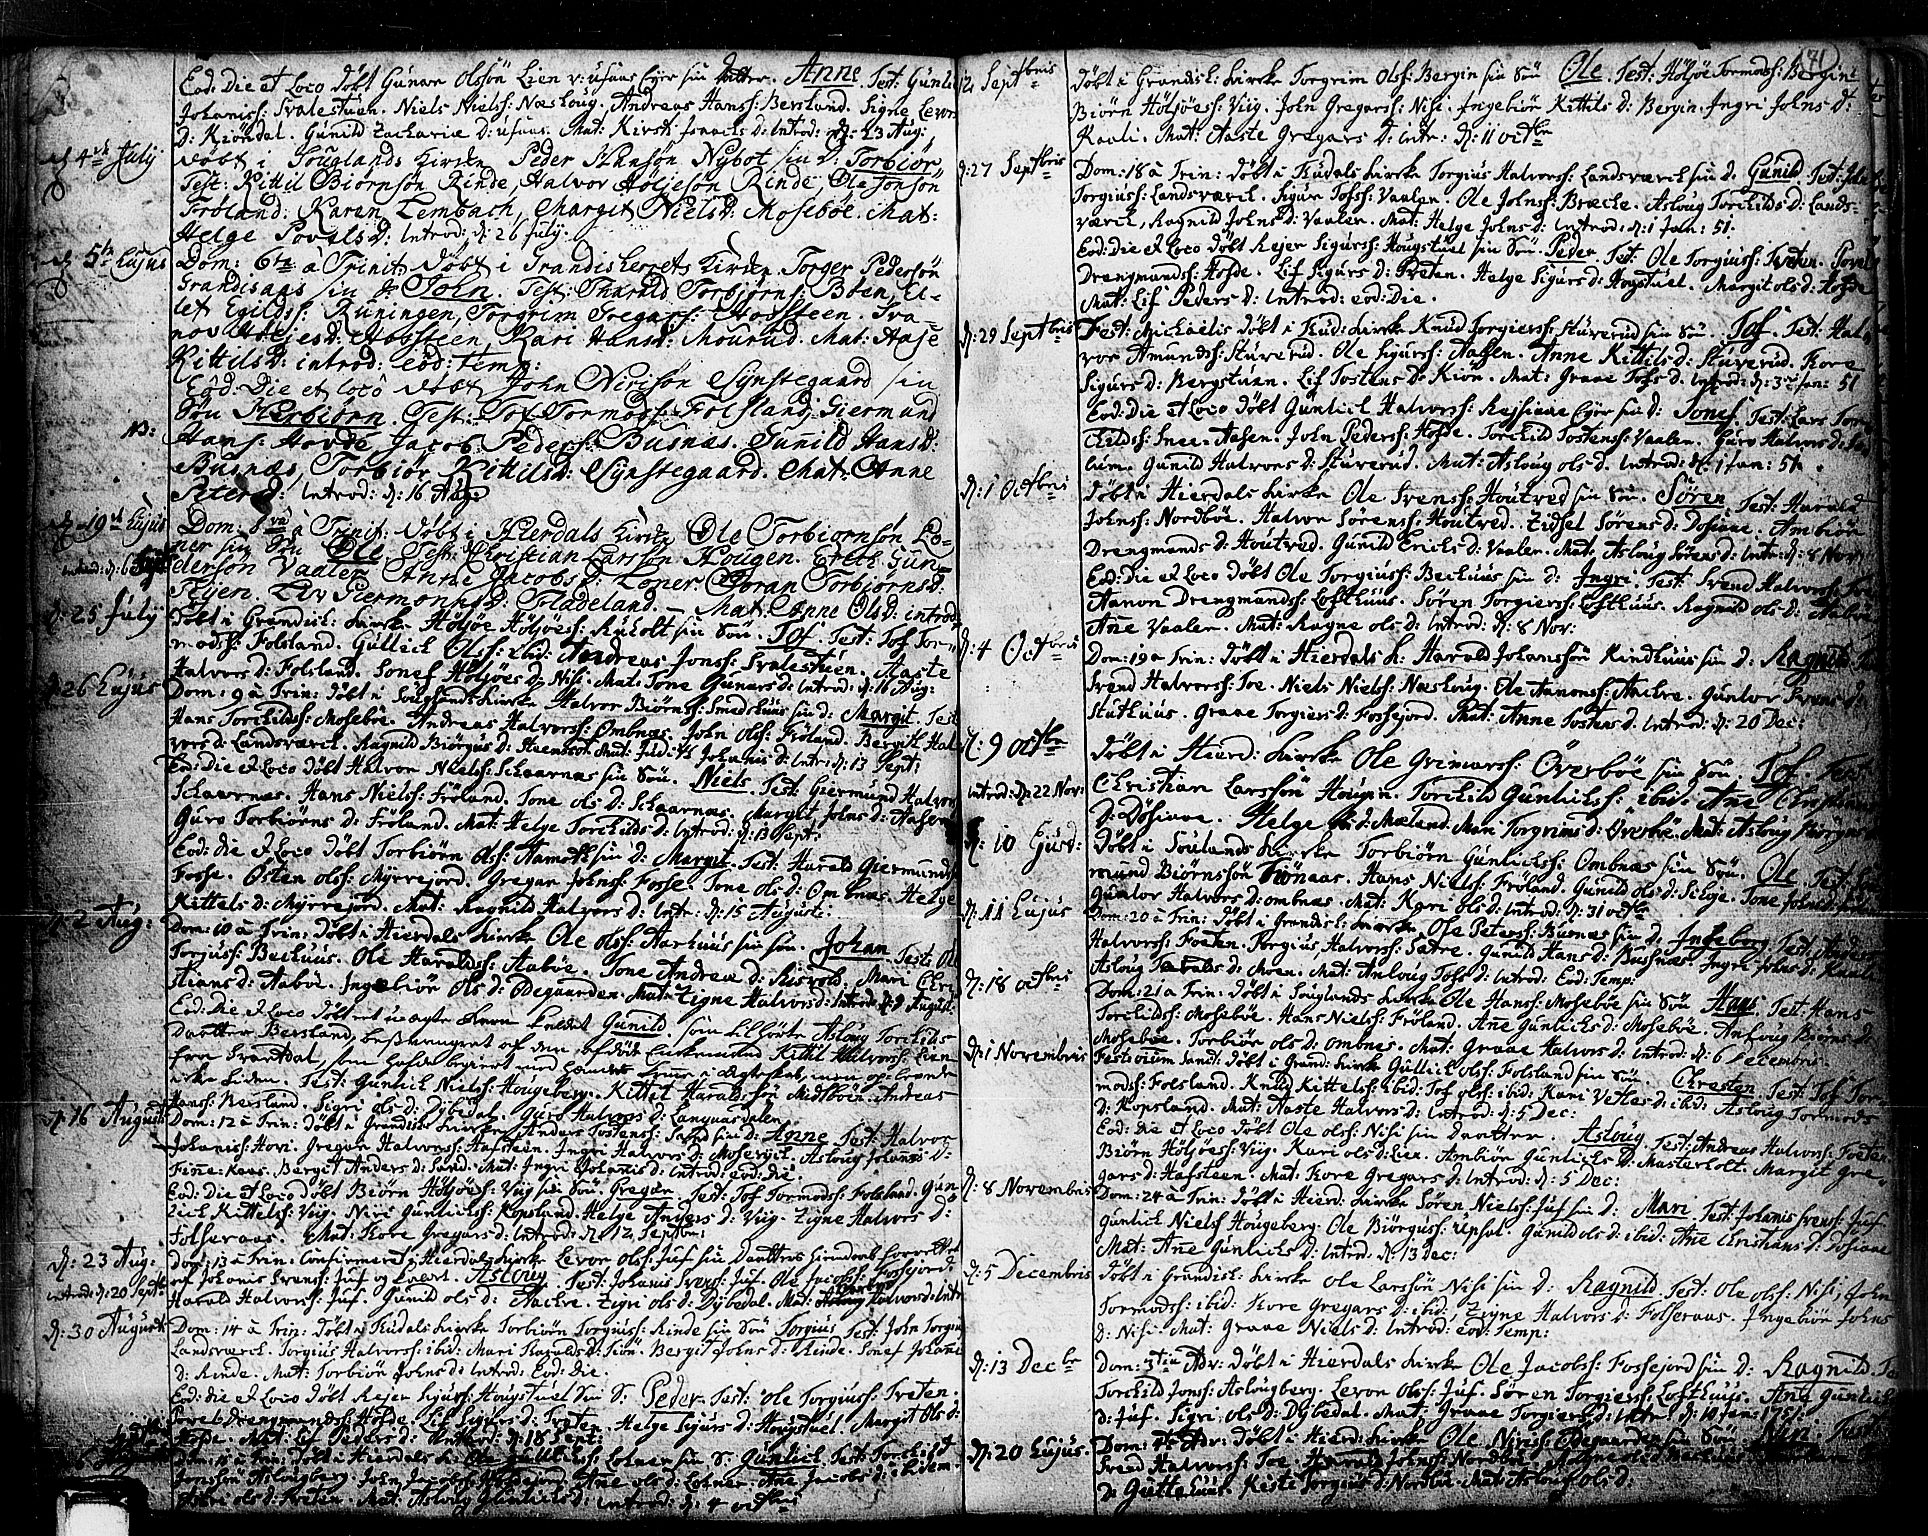 Eod: Die et Loco döbt Gunar Olssön Lien v: ufaas Eyer sin datter. Anne. Test: Gunlic
Johanisf: Svalestuen. Niels Nielsf: Næsloug. Andreas Hansf: Bersland. Signe Levors
D: Kiöndal. Gunild Zachariæ D: ufaas. Mat: Kirsti Isaachs D: Introd: d: 23 Aug:
d. 4de July döbt i Souglands Kirke Peder Hansøn Nybot sin D: Torbiör.
Test: Kittil Biörnsøn Rinde, Halvor Höljesøn Rinde, Ole Jonsøn
Fröland: Karen Lembach, Margit Nielsd: Mosebøe. Mat:
Helge Povelsd: Introd: d: 26 july.
d. 5te Ejus Dom: 6ta à Trinit: döbt i Grandisherrets Kirke. Torger Pedersøn
Grandisaas sin S: John. Test: Tharald Torbjørns: Bøen, El-
lef Egildss: Runingen, Torgrim Gregars: Hafsteen. Gra-
nov Höljesd: Hafsteen, Kari Hansd: Mourud. Mat: Aase
Kittilsd: introd: eod: Temp:
Eod: Die et loco döbt John Nirisøn Synstegaard sin
Sön Herbiørn. Test: Tof Tormods: Folsland, Giermund
NB: Hans: Hovde Jacob Peders: Busnæs. Gunild Hansd:
Busnæs, Torbiör Kittilsd: Synstegaard. Mat: Anne
Petersd: Introd: d: 16 Aug:
d. 19de Ejus Dom: 8va à Trinit: döbt i Hierdals Kirke Ole Torbiornsøn Lo-
ner sin Sön Ole Test: Christian Larssøn Hougen. Erech Gun-
dersøn Vaaler Anne Jacobs D: Loner Gøran Torbiørnsd:
Teijen. Liv Giermonds D: Fladeland. — Mat: Anne Olsd: introd:
d: 25 July Döbt i Grandish: Kirke Höljøe Höljøesf: Rukolt sin Sön. Tof. Test: Tof Tor-
modsf: Folsland. Gulleck Olsf: ibid: Andreas Jonsf: Svalestuen. Aaste
Halvors d: Folsland. Sonef Höljøes d: Nisi. Mat: Tone Gunars d: Introd: d: 16 Aug:
d: 26 Ejus Dom: 9 à Trin: döbt i Souglands Kirke Halvor Biörnsf: Smedshuus sin d: Margit. Test
Hans Torchildsf: Mosebøe. Andreas Halvorsf: Ombnæs. John Olsf: Fröland. Bergit Hal-
vors d: Landsværck. Ragnild Biörgus d: Johanis d: Intr: d: 13 Sept:
Eod: Die et Loco döbt Halvor Nielsf: Schaarnæs sin Sön. Niels. Test: Giermund Halvors
Schaarnæs. Hans Nielsf: Fröland. Tone ols d: Schaarnæs. Margit Johns d: Aasen
Guro Torbiörns d: Fröland. Mat: Helge Torchilds d: Introd: d: 13 Sept:
Eod: die et Loco döbt Torbiörn Olsf: Aamodt sin d: Margit. Test: Harald Giermunds
Fosse. Østen olsf: Myrrejord. Gregar Johnsf: Fosse. Tone ols d: Ombnæs. Helge
Kittels d: Myrrejord. Mat: Ragnild Halvors d: Intr: d: 15 Augusti.
d: 2 Aug: Dom: 10 à Trin: döbt i Hierdals Kirke Ole olsf: Aarhuus sin sön. Johan Test: Ole
Torjusf: Bechuus. Ole Haraldsf: Aabøe. Tone Andreæ d: Risvold. Mari Chri
stians d: Aabøe. Ingebiör ols d: Ødegaarden. Mat: Zigne Halvors d: Introd: d: 9 August.
Eod: die et Loco döbt et uægte barn kaldet Gunild, som tilhörte Asloug Torchilds
Daatter Bersland, besvangret af den afdöde Enckemand Kittil Halvorsf: Lien
fra Svartdal, som hafde begieret med hende leve i Ægteskab, men op-levede
icke tiden. Test: Gunlich Nielsf: Hougeberg. Kittel Haraldssön Midtbøen. Andreas
Hansf: Nersland. Sigri ols d: Dybedal. Guro Halvors d: Languasdalen.
d: 16 August Dom: 12 à Trin: döbt i Grandish: Kirke Anders Tostensf: Sand sin d: Anne Test: Halvor
Johanisf: Hovi. Gregar Halvorsf: Hafsteen. Ingri Halvors d: Mosergit. Asloug Johanis d:
Finne-Kaas. Bergit Anders d: Sand. Mat: Ingri Johanis d: Introd: eod: die.
Eod: Die et Loco döbt Biörn Höljöesf: Viig sin Sön. Gregar. Test: Tof Tormodsf: Folsland. Gun
lich Kittelsf: Viig. Niri Gunlichsf: Kopsland. Helge Anders d: Viig. Zigne Halvors d:
Folseraas. Mat: Kore Gregars d: Introd: d: 12 Septbr:
d: 23 Aug: dom: 13 à Trin: Confirmeret i Hierdals Kirke Levor Olsf: Juf sin Daatters
introd: d: 20 Sept: af Johanis Svensf: Juf og kaldt. Asloug. Test: Johanis Svensf: Juf. Ole Jacobsf: Fossejord
Harald Halvorsf: Juf. Gunild ols d: Aackre. Zigri ols d: Dybedal. Mat: Halvors d: Intr
d: 30 August Dom: 14 à Trin: döbt i Tudals Kirke Torbiörn Torgiusf: Rinde sin Sön Torgius. Test: John Torgius
Landsværck. Torgius Halvorsf: ibid: Mari Haralds d: Siön. Bergit Johns d: Rinde. Sonef Johans
d: Rinde. Mat: Torbiör Johns d: Introd: Eod: die.
Eod: die et Loco döbt Rejer Sigursf: Hougstuel sin S: Peder. Test: Ole Torgiusf: Treten.
Povel Drengmandsf: Hofde. Lif Sigurs d: Treten. Helge Sigurs d: Hougstuel. Margit Ols d:
Hofde. Mat: Lif Peders d: Introd: d: 18 Sept:
Dom: 15 à Trin: döbt i Hierdals K: Ole Gunlichsf: Lohner sin S: Gunlich Test: Torchild
Jonssön Aslougberg. John Jacobsf: Anne ols d: Lohner. Ane Jacobs d: ibidem.
ols d: Treten. Mat: Asloug Gunlichs d: Introd: d: 4 octbris
(71)
12 Septbris döbt i Grandish: Kirke Torgrim Olsf: Bergin sin Sön Ole. Test: Höljöe Tormodsf: Bergin
Biörn Höljöesf: Viig. John Gregarsf: Nisi. Ingebiör Kittils d: Bergin. Ingri Johns d:
Kaali. Mat: Aaste Gregars d: Intr: d: 11 octbr
d: 27 Septbris Dom: 18 à Trin: döbt i Tudals Kirke Torgius Halvorsf: Landsværck sin d. Gunild Test: John
Torgiusf: Landsværck. Sigur Tofsf: Vaalen. Ole Johnsf: Bræcke. Asloug Torchilds d: Lands-
værck, Ragnild Johns d: Vaalen. Mat: Helge Johns d: Introd: d: 1 Jan: 51.
Eod: Die et Loco döbt Rejer Sigursf: Hougstuel sin Sön. Peder. Test: Ole Torgiusf: Treten. Povel
Drengmandsf: Hofde. Lif Sigurs d: Treten. Helge Sigurs d: Hougstuel. Margit ols d: Hofde
Mat: Lif Peders d: Introd: eod: Die.
d: 29 Septbris Fest: Michaelis döbt i Tud: Kirke Knud Torgiersf: Sturerud sin Sön. Tof. Test: Hal-
vor Amundsf: Sturerud. Ole Sigursf: Aasen. Anne Kittils d: Sturerud. Kore
Sigurs d: Bergstuen. Lif Tostens d: Kiön. Mat: Graae Tofs d: Introd: d: 3 Jan: 51
Eod: Die et Loco döbt Gunlich Halvorsf: Rejsiaae Eyer sin d: Sonef Test: Lars Tor-
childsf: Snee-Aasen. John Pedersf: Hofde. Torchild Tostensf: Vaalen. Guro Halvors d:
lum. Gunild Halvors d: Sturerud. Mat: Asloug ols d. Introd: d: 1 Jan: 51.
d: 1 Octbris döbt i Hierdals Kirke Ole Svensf: Houtved sin Sön. Sören. Test: Harald
Johnsf: Nordbøe. Halvor Sörensf: Houtved. Zidsel Sörens d: Dosiaae. Anebiör
Drengmands d: Houtved. Gunild Erichs d: Vaalen. Mat: Asloug Sörens d: Intr: d: 8 Nov:
Eod: Die et Loco döbt Ole Torgiusf: Bechuus sin d: Ingri. Test: Svend Halvorsf:
Aanon Drengmandsf: Lofthuus. Sören Torgiersf: Lofthuus. Ragnild ols d: Aabøe
Anne Vaalen. Mat: Ragne ols d: Introd: d: 8 Nov:
d: 4 Octbris Dom: 19 à Trin: döbt i Hierdals K: Harald Johanssön Kindhuus sin d: Ragnild Test
Svend Halvorsf: Toe. Niels Nielsf: Næsloug. Ole Aanonsf: Aackre. Gunlov Svens d:
Stuthuus. Graae Torgiers d: Fossejord. Mat: Anne Tostens d. Introd: d: 20 Dec:
d: 9 octbr döbt i Hierd: Kirke Ole Grimarsf: Överbøe sin Sön: Tof. Test:
Introd: d: 22 Nov: Christian Larssön Hougin. Torchild Gunlichsf: ibid: Ane Christians
d: Dosiaae. Helge d: Mæland. Mari Torgrims d: Överbøe. Mat: Asloug Biörgus d:
d: 10 Ejusd: döbt i Soulands Kirke Torbiörn Gunlichsf: Ombnæs sin Sön. Ole. Test:
mund Biörnssön Tiönaas. Hans Nielsf: Fröland. Gunild ols d: Silge. Tone Johns d:
Gunlov Halvors d: ombnæs. Mat: Kari ols d: Introd: d: 31 octbr
d: 11 Ejus Dom: 20 à Trin: döbt i Grandish: Kirke Ole Petersf: Busnæs sin d. Ingeborg. Test: Anders
Halvorsf: Foeten. Torgius Halvorsf: Sætre. Gunild Hans d: Busnæs. Ingri Johns d: Kaali
Asloug Haralds d: Moen. Mat: Anloug Tofs d: Introd: Eod: Temp:
d: 18 octbris Dom: 21 à Trin: döbt i Souglands Kirke Ole Hansf: Mosebøe sin Sön Hans Test: Hans
Torchildsf: Mosebøe. Hans Nielsf: Fröland. Anne Gunlichs d: Mosebøe. Anloug Biörns d:
Mosebøe. Torbiör ols d: ombnes. Mat: Graae Halvors d: Introd: d: 6 Decembris.
d: 1 Novembris Festo oium Sanct: döbt i Grand: Kirke Gullich olsf: Folsland sin Sön. Chresten Test: Tof Tor-
modsf: Folsland. Knud Kittelsf: ibid: Tof olsf: ibid: Kari Vetles d: ibid: Asloug Tormods
d: Kopsland. Mat: Aaste Halvors d: Introd: d: 5 Dec:
Eod: die et Loco döbt Ole olsf: Nisi sin Daatter. Asloug. Test: Andreas Halvorsf: Foeten.
Biörn Höljöesf: Viig. Kari ols d: Lien. Anbiör Gunlichs d: Mastereolt. Margit Gre-
gars d: Hafsteen. Mat: Kore Gregars d: Introd: d: 5 Dec:
d: 8 Novembris Dom: 24 à Trin: döbt i Hierd: Kirke Sören Nielsf: Juf sin d: Mari Test: Johanis Svensf: Juf
Gunlich Nielsf Hougeberg. Ole Biörgusf: Uphol. Gunild ols d: ibid: Ane Christians d: Dosiaae
Mat: Ane Gunlichs d: Introd: d: 13 Dec:
d: 5 Decembris döbt i Grandish: Kirke Ole Larssön Nisi sin d: Ragnild. Test: Ole olsf: Nisi, John
Tormodsf: ibid: Kore Gregars d: ibid: Zigne Halvors d: Folseraas. Ingebiör Johns
d: Nisi. Mat: Graae Niels d: Introd: eod: Temp:
d: 13 Decbr Dom: 3tia Adv: döbt i Hierdals Kirke Ole Jacobsf: Fossejord sin d: Ragnild Te
Torchild Jonsf: Aslougberg. Levor Olsf: Juf. Sören Torgiersf: Lofthuus. Ane Gunlichs
d: Juf. Sigri ols d: Dybedal. Mat: Graae Torgiers d: Intr: d: 10 Jan: 1751.
d: 20 Ejus. Dom: 4ta Adv: döbt i Hierd: Kirke Ole Nirisf: Ødegaarden sin Sön. Niri. Test:
Svend Halvorsf: Toe. Harald Johnsf: Nordbøe.
d: Guttehuus. Kiste Torgius d: Nordbøe. Mat: Asloug ols d.